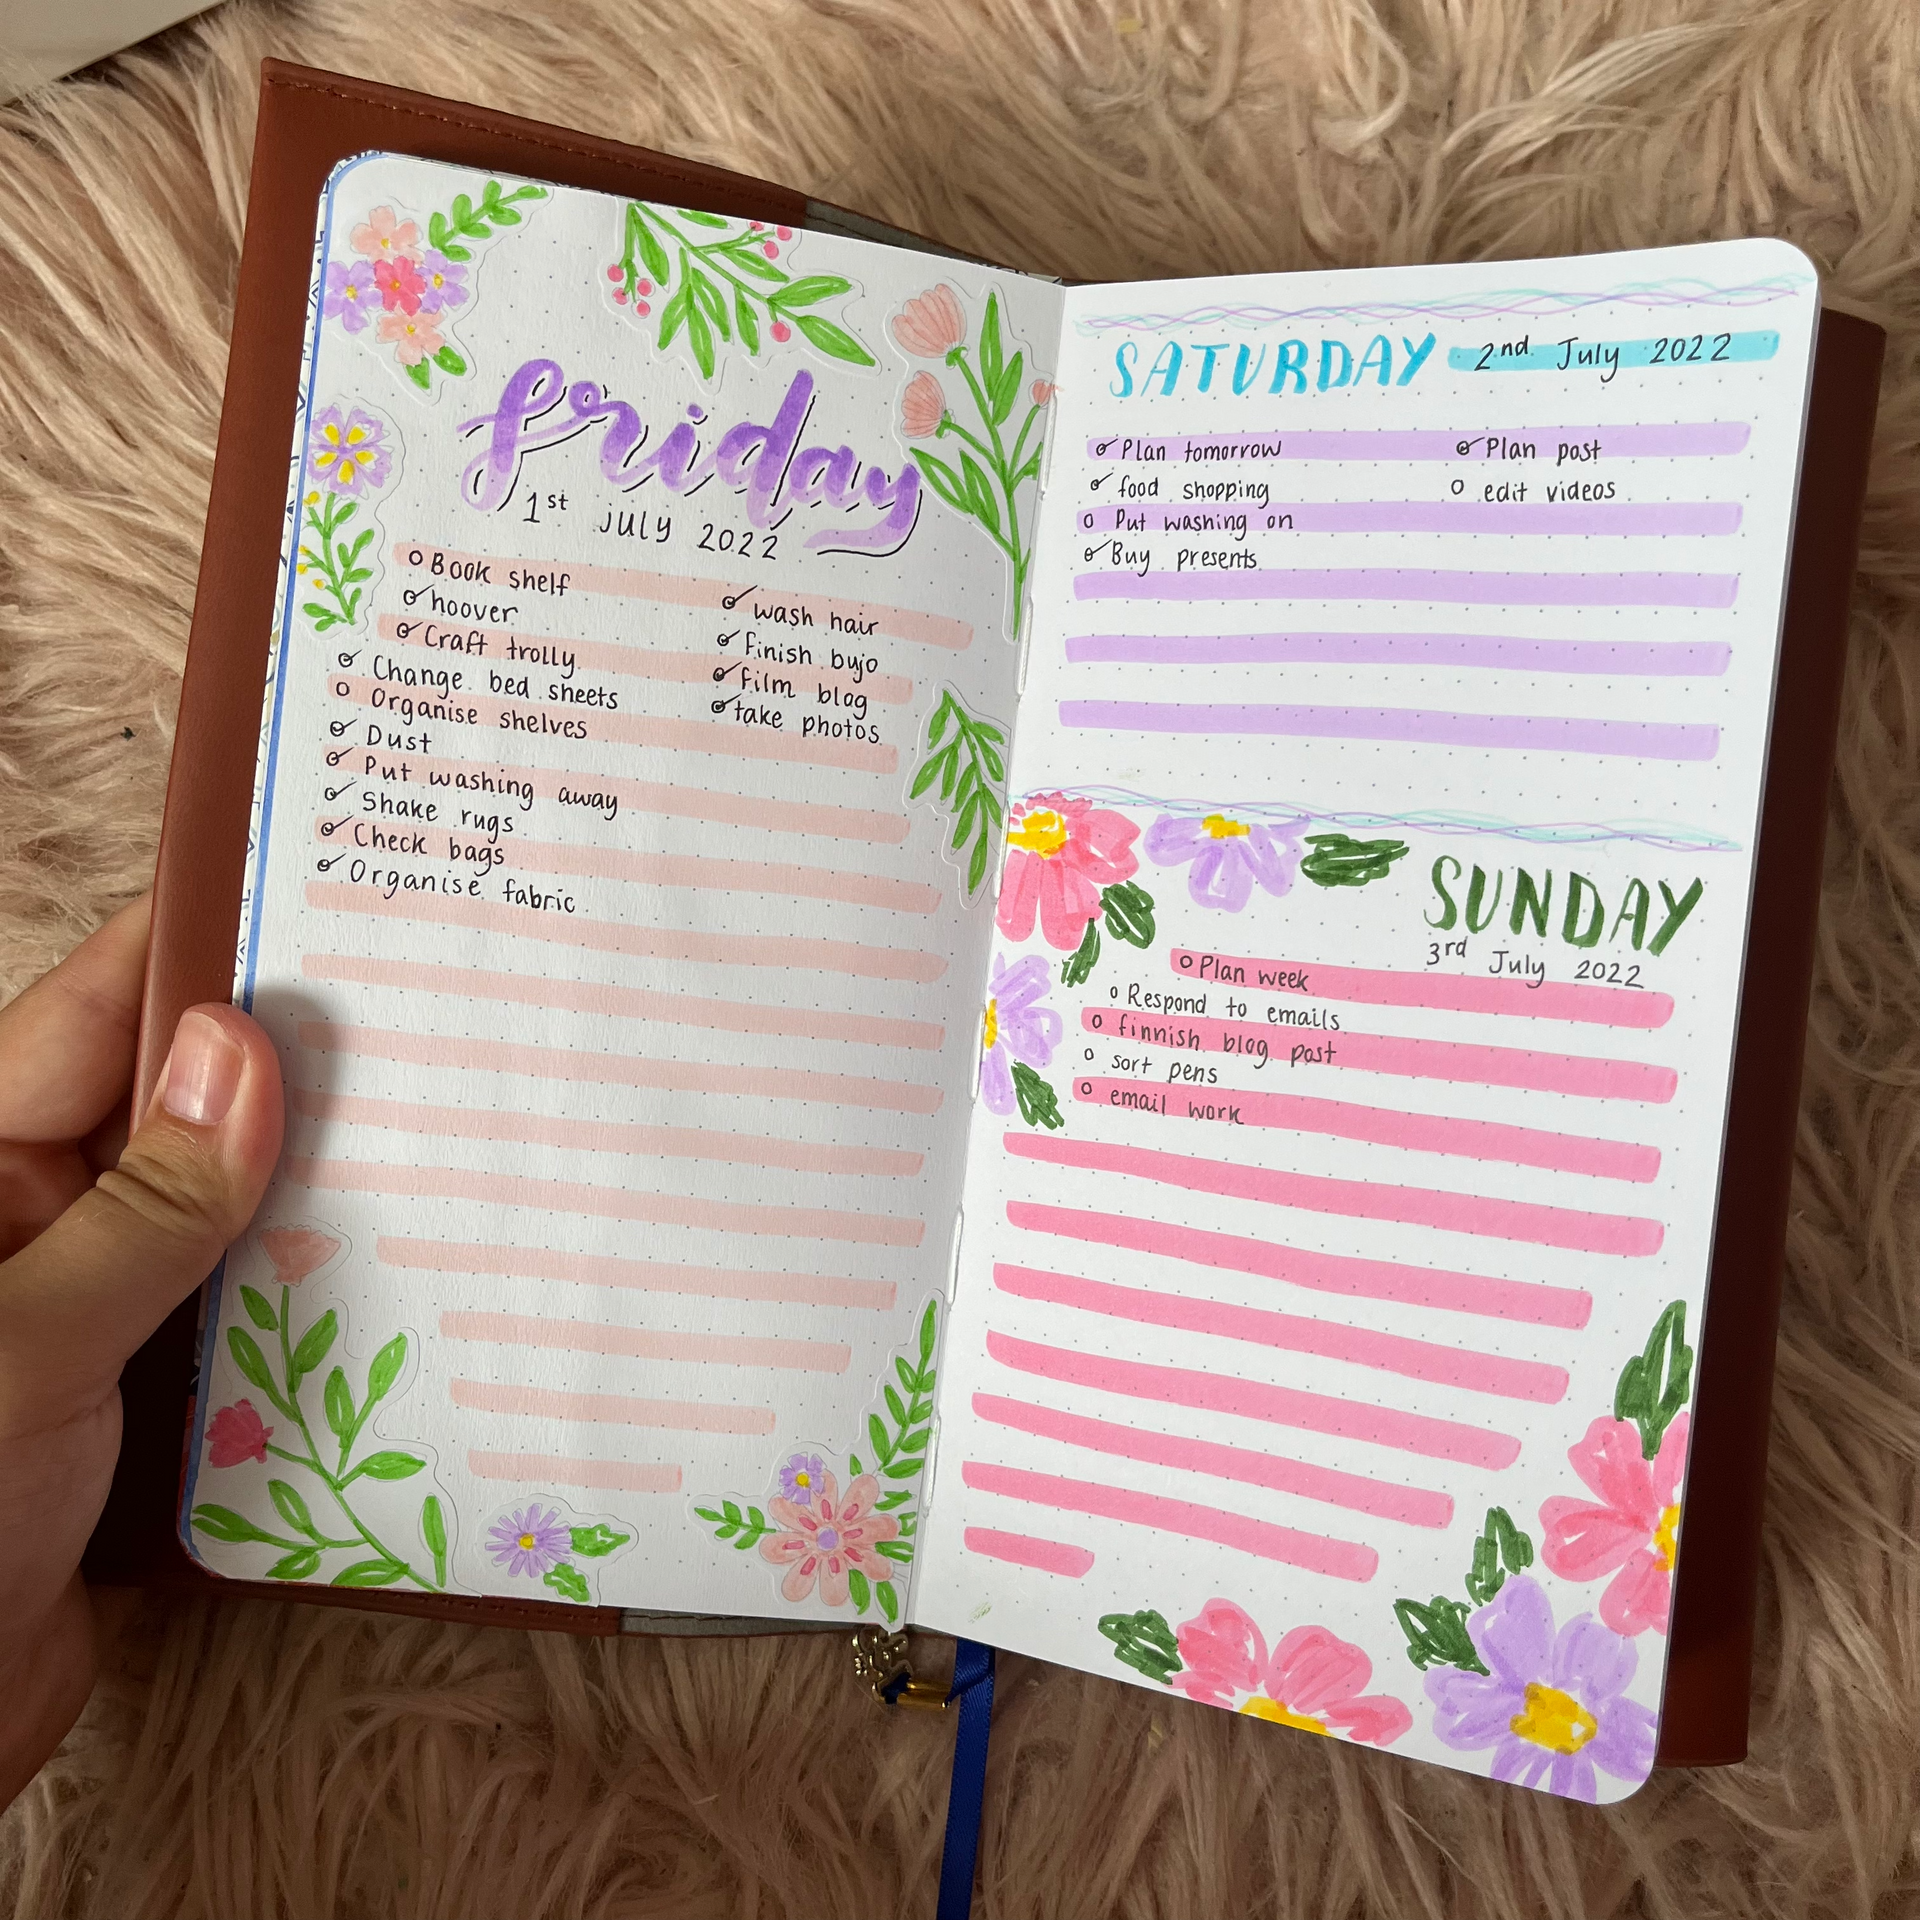 friday
1st july 2022
Book shelf
hoover
Craft trolly
Change bed sheets
Organise shelves
Dust
Put washing away
Shake rugs
Check bags
Organise fabric
wash hair
finish bujo
film blog
take photos
SATURDAY 2nd July 2022
Plan tomorrow
food shopping
Put washing on
Buy presents
Plan post
edit videos
SUNDAY
3rd July 2022
Plan week
Respond to emails
finnish blog post
sort pens
email work